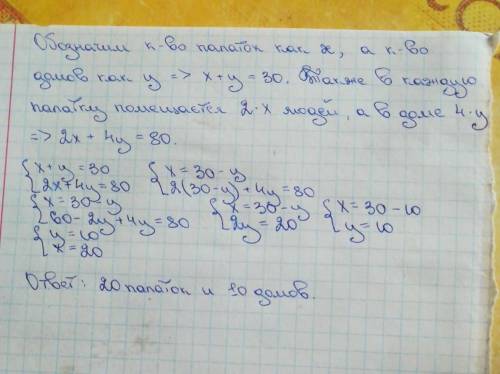 Обозначим к-во папаток как x, а к-во
домов как y => x+y=30. Также в каждую
папатку помещается 2·x людей, а в доме 4·y
=> 2x+4y=80.
{x+y=30 {x=30-y
{2x+4y=80 {2(30-y)+4y=80
{x=30-y {x=30-y {x=30-10
{60-2y+4y=80 {2y=20 {y=10
{y=10
{x=20
Ответ: 20 папаток и 10 домов.